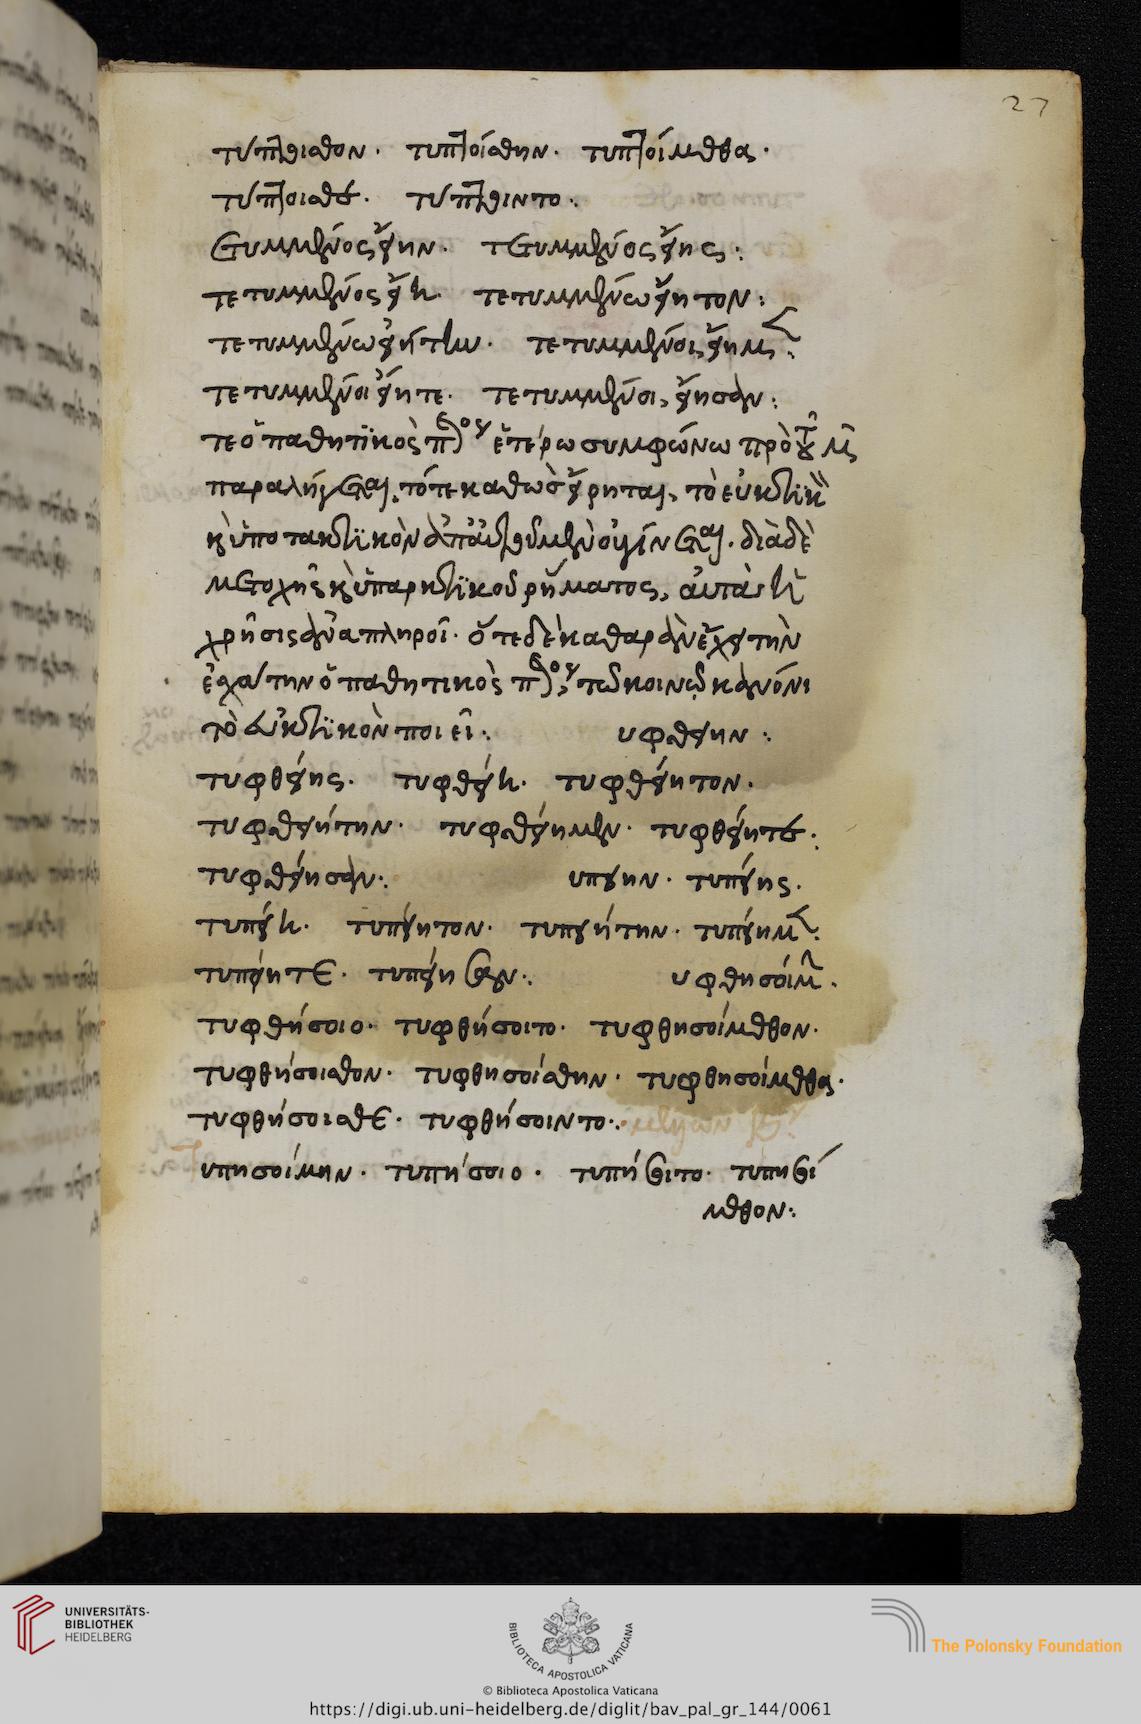 27
τύπτοισθον· τυπτοίσθην· τυπτοίμεθα·
τύπτοισθε· τύπτοιντο:
ετυμμένος εἴην· τετυμμένος εἴης:
τετυμμένος εἴη· τετυμμένω εἴητον:
τετυμμένω εἰήτην· τετυμμένοι εἴημεν:
τετυμμένοι εἴητε· τετυμμένοι, εἴησαν:
τε ὁ παθητικὸς ἑτέρω συμφώνω πρὸ τοῦ μαι
παραλήγεται, τότε καθὼς εἴρηται, τὸ εὐκτικὸν
καὶ ὑποτακτικὸν
μετοχῆς καὶ ὑπαρκτικοῦ ῥήματος,
χρῆσις ἀναπληροῖ· ὅτε δὲ καθαρὰν ἔχει τὴν
ἐσχάτην ὁ παθητικὸς τῶ κοινῶ κανόνι
τὸ εὐκτικὸν ποιεῖ: υφθείην:
τυφθείης· τυφθείη· τυφθείητον·
τυφθειήτην· τυφθείημεν· τυφθείητε:
τυφθείησαν: υπείην· τυπείης·
τυπείη· τυπείητον· τυπειήτην· τυπείημεν:
τυπείητε· τυπείησαν: υφθησοίμην·
τυφθήσοιο· τυφθήσοιτο· τυφθησοίμεθον·
τυφθήσοισθον· τυφθησοίσθην· τυφθησοίμεθα·
τυφθήσοισθε· τυφθήσοιντο:
Τυπησοίμην· τυπήσοιο· τυπήσοιτο· τυπησοί
μεθον:
UNIVERSITÄTS-
BIBLIOTHEK
HEIDELBERG
BIBLIOTECA APOSTOLICA VATICANA
The Polonsky Foundation
© Biblioteca Apostolica Vaticana
https://digi.ub.uni-heidelberg.de/diglit/bav_pal_gr_144/0061